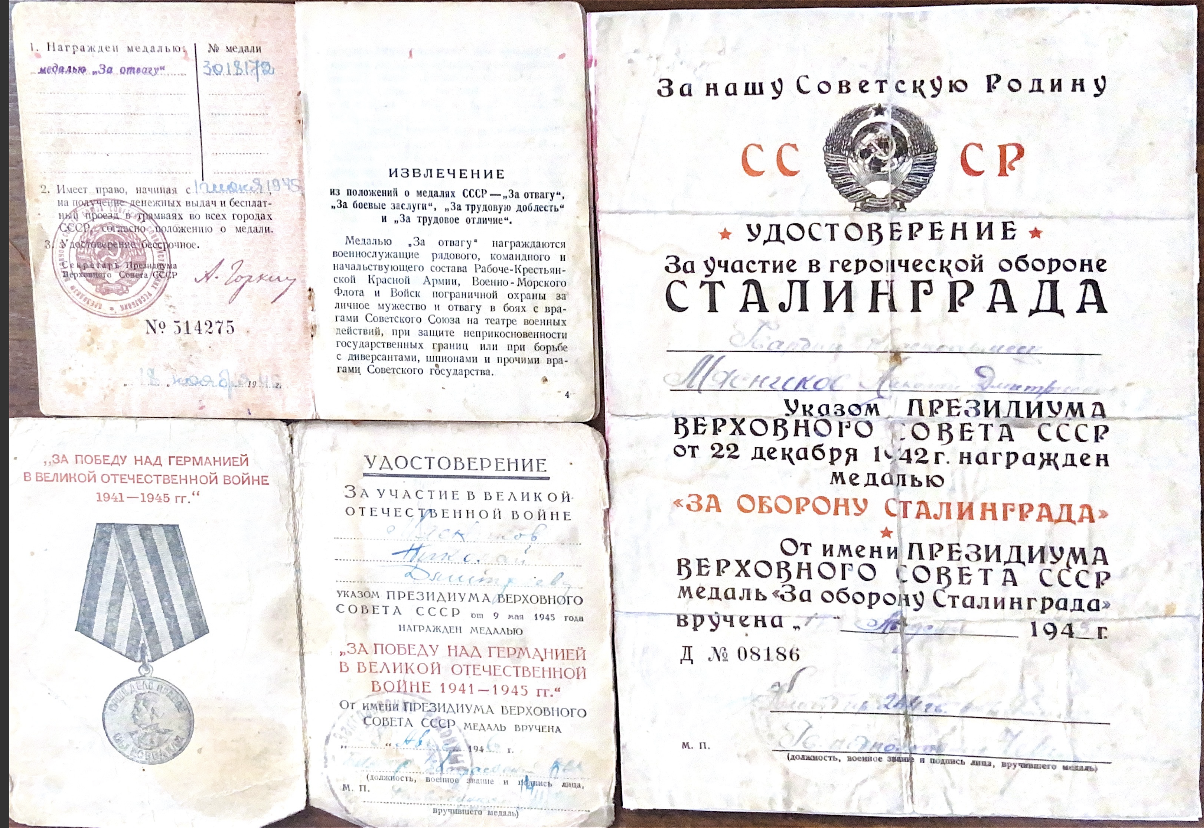 1. Награжден медалью:
№ медали
медалью „За отвагу“
3018172
2. Имеет право, начиная с
на получение денежных выдач и бесплат-
ный проезд в трамваях во всех городах
СССР, согласно положению о медали.
3. Удостоверение бессрочное.
Секретарь Президиума
Верховного Совета СССР
А. Горкин
№ 514275
ИЗВЛЕЧЕНИЕ
из положений о медалях СССР — „За отвагу“,
„За боевые заслуги“, „За трудовую доблесть“
и „За трудовое отличие“.
Медалью „За отвагу“ награждаются
военнослужащие рядового, командного и
начальствующего состава Рабоче-Крестьян-
ской Красной Армии, Военно-Морского
Флота и Войск пограничной охраны за
личное мужество и отвагу в боях с вра-
гами Советского Союза на театре военных
действий, при защите неприкосновенности
государственных границ или при борьбе
с диверсантами, шпионами и прочими вра-
гами Советского государства.
4
„ЗА ПОБЕДУ НАД ГЕРМАНИЕЙ
В ВЕЛИКОЙ ОТЕЧЕСТВЕННОЙ ВОЙНЕ
1941—1945 гг.“
УДОСТОВЕРЕНИЕ
ЗА УЧАСТИЕ В ВЕЛИКОЙ
ОТЕЧЕСТВЕННОЙ ВОЙНЕ
УКАЗОМ ПРЕЗИДИУМА ВЕРХОВНОГО
СОВЕТА СССР от 9 мая 1945 года
НАГРАЖДЕН МЕДАЛЬЮ
„ЗА ПОБЕДУ НАД ГЕРМАНИЕЙ
В ВЕЛИКОЙ ОТЕЧЕСТВЕННОЙ
ВОЙНЕ 1941—1945 гг.“
ОТ ИМЕНИ ПРЕЗИДИУМА ВЕРХОВНОГО
СОВЕТА СССР МЕДАЛЬ ВРУЧЕНА
194 г.
(должность, военное звание и подпись лица,
М. П.
вручившего медаль)
За нашу Советскую Родину
СССР
УДОСТОВЕРЕНИЕ
За участие в героической обороне
СТАЛИНГРАДА
Дмитриевич
Указом ПРЕЗИДИУМА
ВЕРХОВНОГО СОВЕТА СССР
от 22 декабря 1942 г. награжден
медалью
«ЗА ОБОРОНУ СТАЛИНГРАДА»
От имени ПРЕЗИДИУМА
ВЕРХОВНОГО СОВЕТА СССР
медаль «За оборону Сталинграда»
вручена „ “ 194 г.
Д № 08186
М. П.
(должность, военное звание и подпись лица, вручившего медаль)